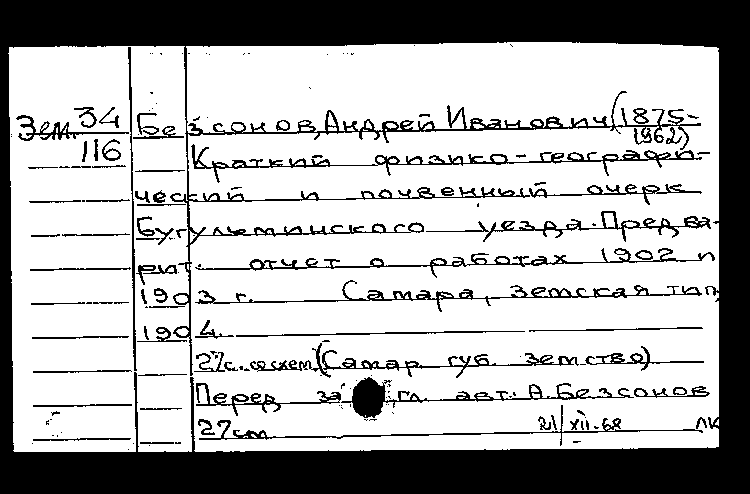 Зем. 34
116
Безсонов, Андрей Иванович (1875-
1962)
Краткий физико-географи-
ческий и почвенный очерк
Бугульминского уезда. Предва-
рит. отчет о работах 1902 и
1903 г. Самара, земская тип,
1904.
27с. со схем. (Самар. губ. земство)
Перед загл. авт.: А. Безсонов
27см 21/XII-68 ЛК